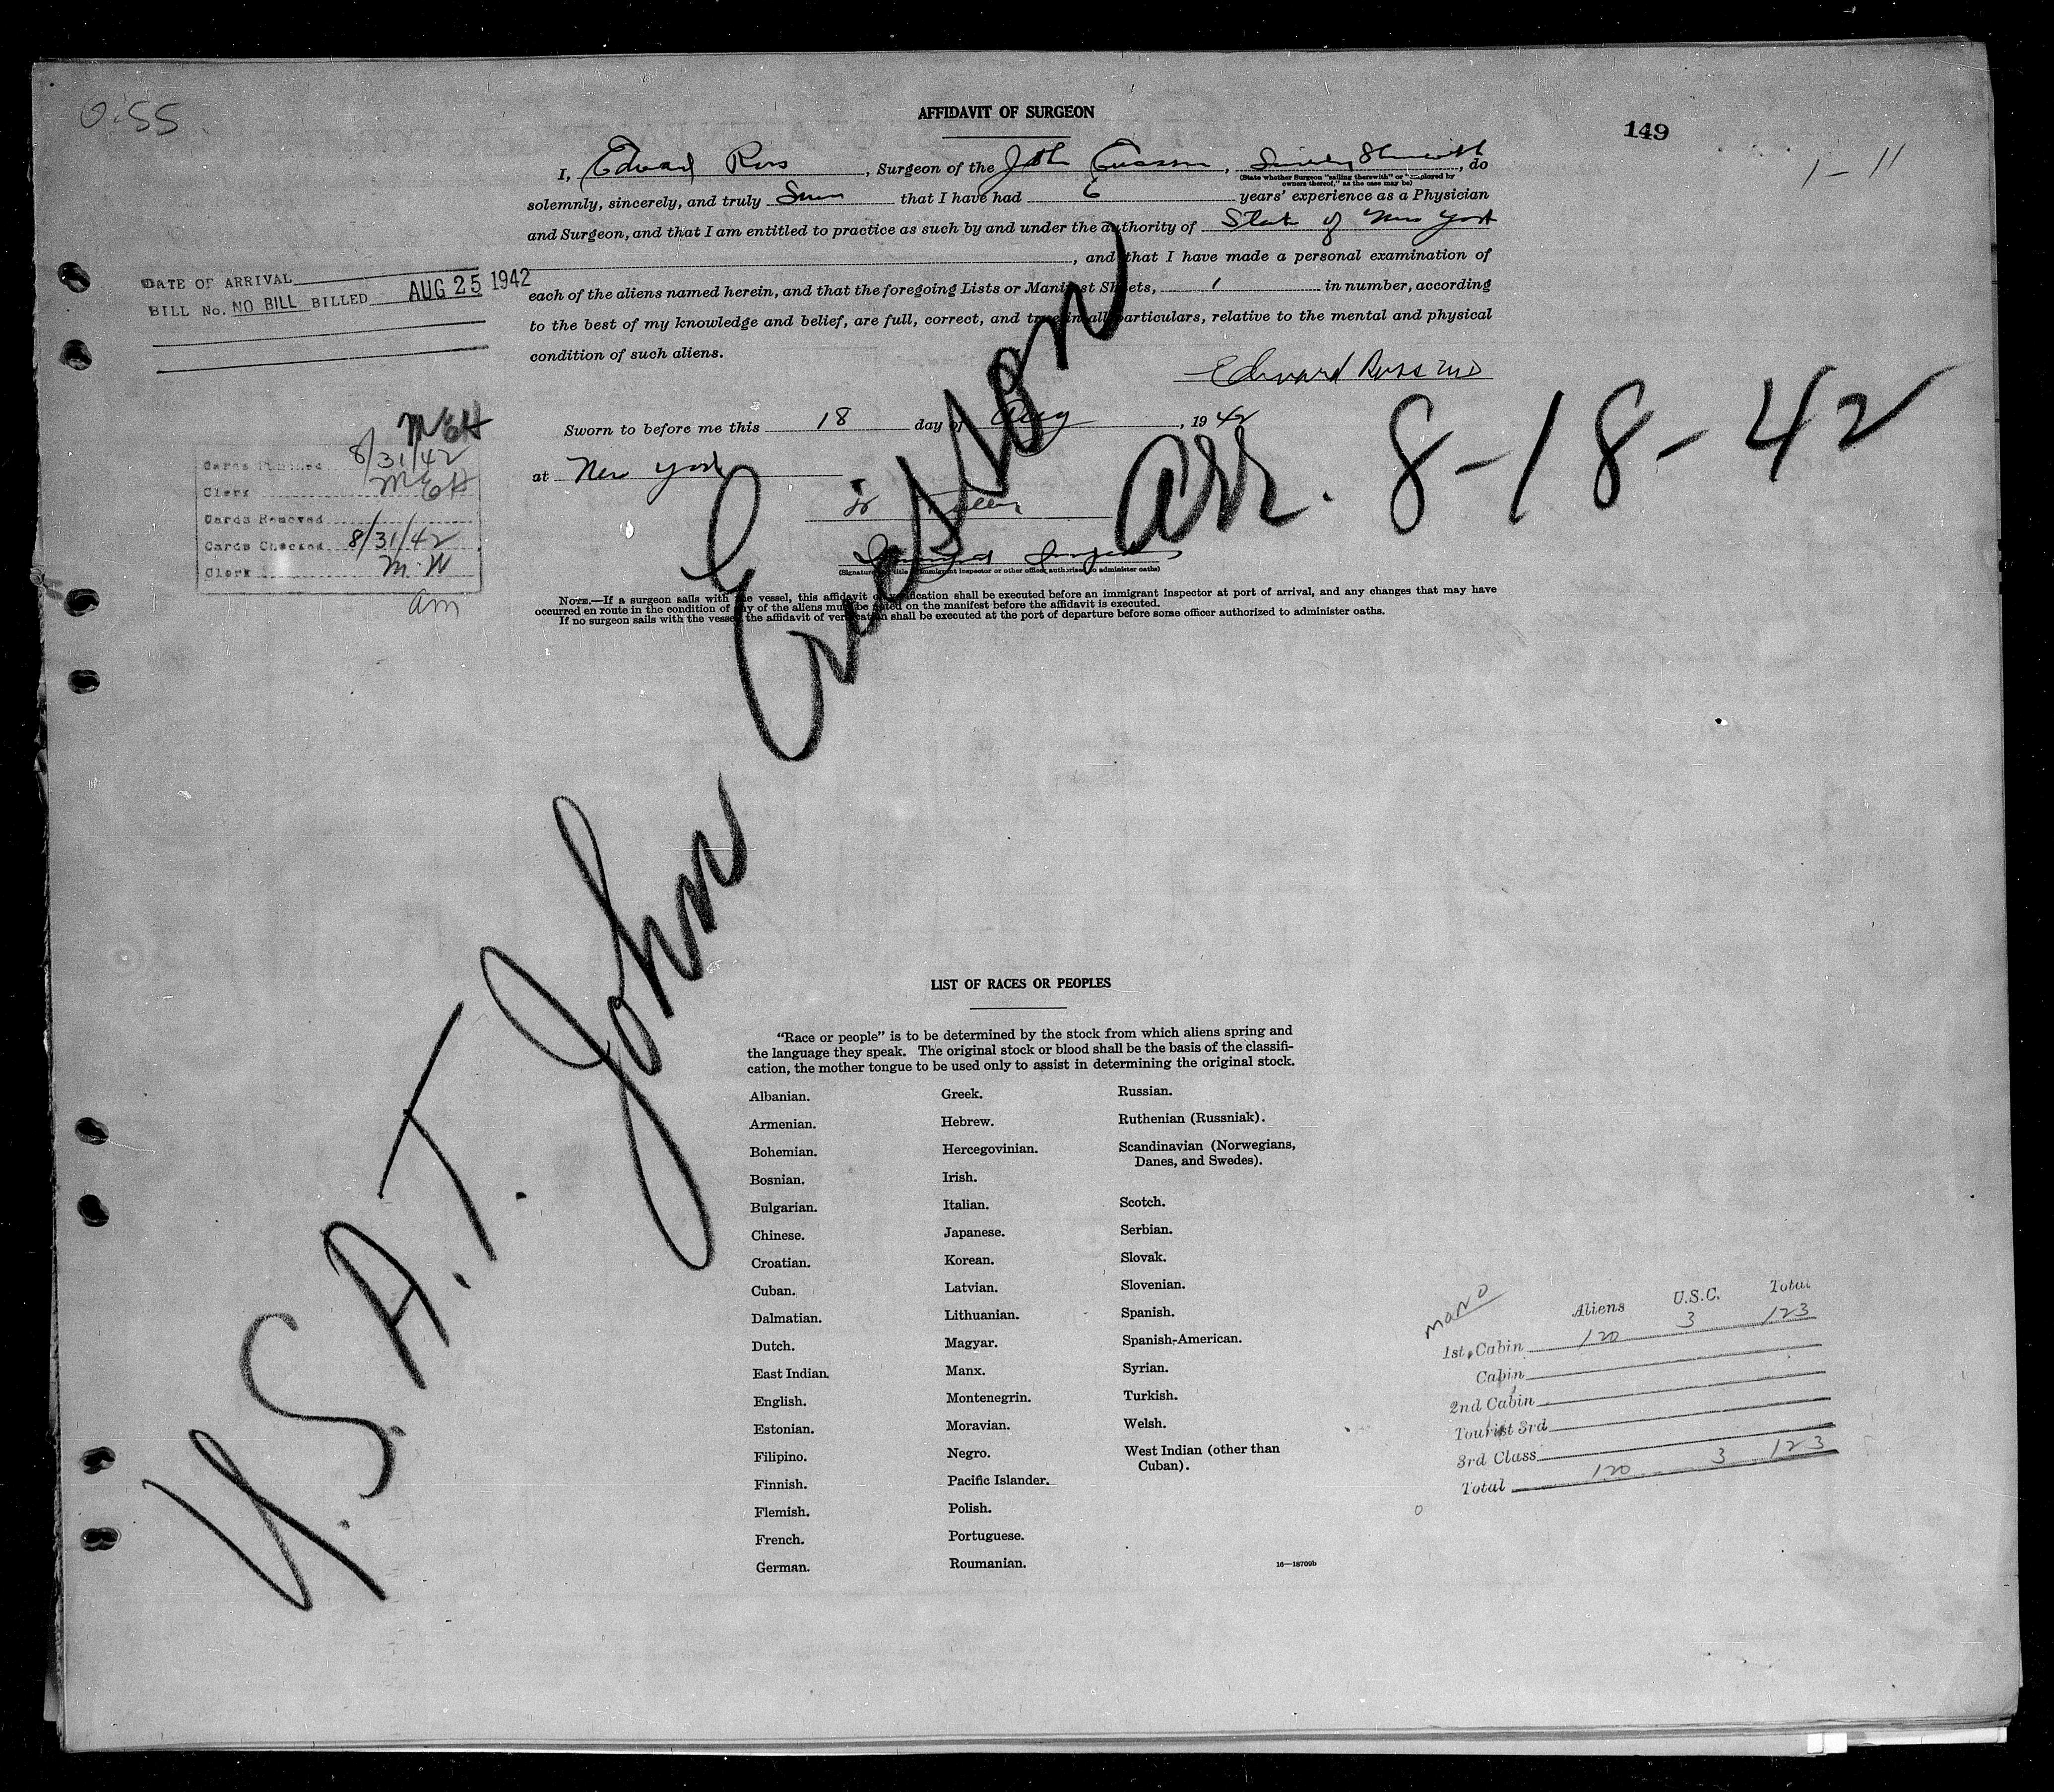 0-55
AFFIDAVIT OF SURGEON
149
1-11
I, Edward Ross, Surgeon of the John Ericsson, Sailing therewith, do
(State whether Surgeon "sailing therewith" or "employed by
owners thereof," as the case may be)
solemnly, sincerely, and truly Swear that I have had 6 years' experience as a Physician
and Surgeon, and that I am entitled to practice as such by and under the authority of State of New York
, and that I have made a personal examination of
each of the aliens named herein, and that the foregoing Lists or Manifest Sheets, 1 in number, according
to the best of my knowledge and belief, are full, correct, and true in all particulars, relative to the mental and physical
condition of such aliens.
Edward Ross MD
DATE OF ARRIVAL
BILL No. NO BILL BILLED AUG 25 1942
Sworn to before me this 18 day of Aug, 1942
at New York
Immigrant Inspector
(Signature and title of immigrant inspector or other officer authorized to administer oaths)
arr. 8-18-42
MEH
Cards Punched 8/31/42
Clerk MEH
Cards Removed
Cards Checked 8/31/42
Clerk M.W
am
NOTE.—If a surgeon sails with the vessel, this affidavit of verification shall be executed before an immigrant inspector at port of arrival, and any changes that may have
occurred en route in the condition of any of the aliens must be noted on the manifest before the affidavit is executed.
If no surgeon sails with the vessel, the affidavit of verification shall be executed at the port of departure before some officer authorized to administer oaths.
U.S.A.T. John Ericsson
LIST OF RACES OR PEOPLES
"Race or people" is to be determined by the stock from which aliens spring and
the language they speak. The original stock or blood shall be the basis of the classifi-
cation, the mother tongue to be used only to assist in determining the original stock.
Albanian.
Armenian.
Bohemian.
Bosnian.
Bulgarian.
Chinese.
Croatian.
Cuban.
Dalmatian.
Dutch.
East Indian.
English.
Estonian.
Filipino.
Finnish.
Flemish.
French.
German.
Greek.
Hebrew.
Hercegovinian.
Irish.
Italian.
Japanese.
Korean.
Latvian.
Lithuanian.
Magyar.
Manx.
Montenegrin.
Moravian.
Negro.
Pacific Islander.
Polish.
Portuguese.
Roumanian.
Russian.
Ruthenian (Russniak).
Scandinavian (Norwegians,
Danes, and Swedes).
Scotch.
Serbian.
Slovak.
Slovenian.
Spanish.
Spanish-American.
Syrian.
Turkish.
Welsh.
West Indian (other than
Cuban).
16—18709b
Aliens U.S.C. Total
1st Cabin 120 3 123
Cabin
2nd Cabin
Tourist 3rd
3rd Class
Total 120 3 123